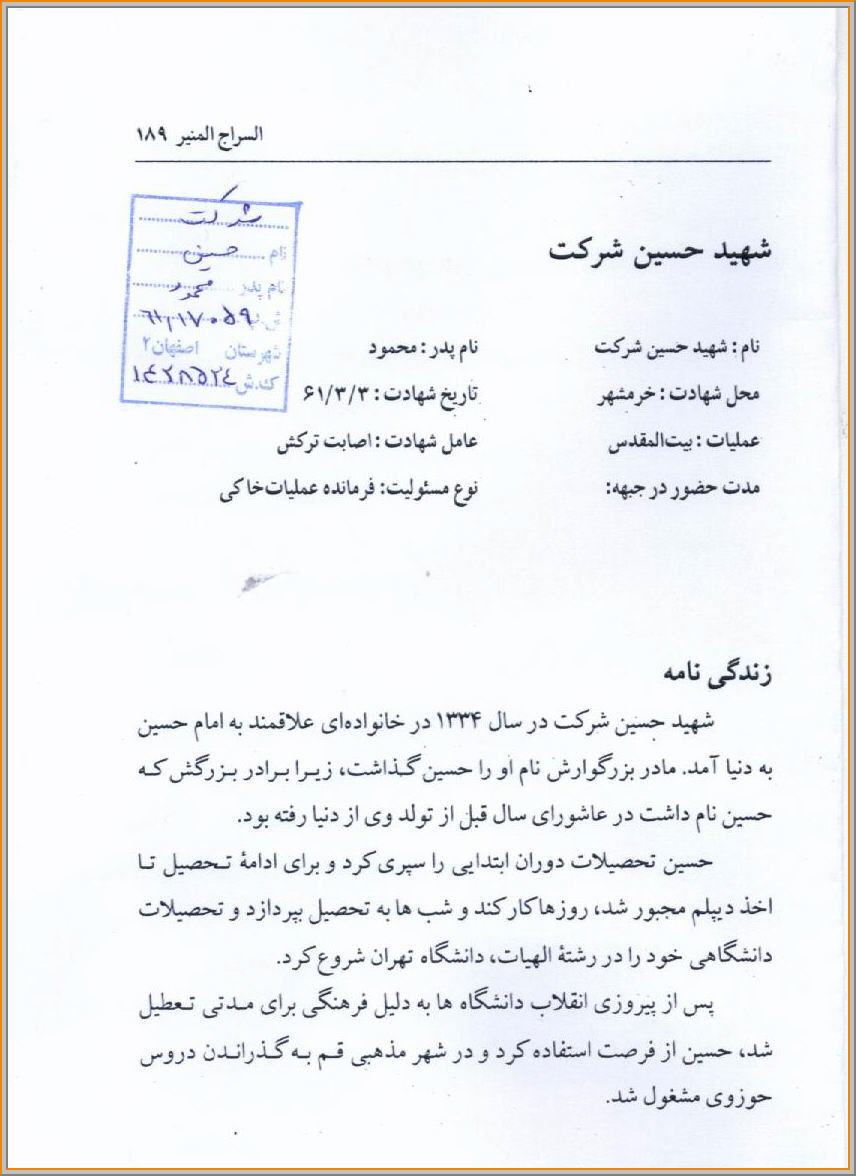 السراج المنیر ۱۸۹
شرکت
نام حسین
نام پدر محمود
شهرستان اصفهان ۲
ک.ش ۱۴۲۸۵۲۴
شهید حسین شرکت
نام : شهید حسین شرکت نام پدر : محمود
محل شهادت : خرمشهر تاریخ شهادت : ۶۱/۳/۳
عملیات : بیت‌المقدس عامل شهادت : اصابت ترکش
مدت حضور در جبهه: نوع مسئولیت: فرمانده عملیات‌خاکی
زندگی نامه
شهید حسین شرکت در سال ۱۳۳۴ در خانواده‌ای علاقمند به امام حسین
به دنیا آمد. مادر بزرگوارش نام او را حسین گذاشت، زیرا برادر بزرگش که
حسین نام داشت در عاشورای سال قبل از تولد وی از دنیا رفته بود.
حسین تحصیلات دوران ابتدایی را سپری کرد و برای ادامهٔ تحصیل تا
اخذ دیپلم مجبور شد، روزها کار کند و شب ها به تحصیل بپردازد و تحصیلات
دانشگاهی خود را در رشتهٔ الهیات، دانشگاه تهران شروع کرد.
پس از پیروزی انقلاب دانشگاه ها به دلیل فرهنگی برای مدتی تعطیل
شد، حسین از فرصت استفاده کرد و در شهر مذهبی قم به گذراندن دروس
حوزوی مشغول شد.